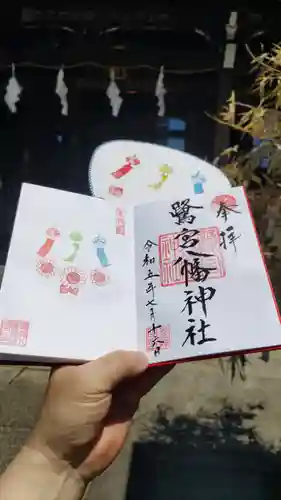 奉拝
鷺宮八幡神社
令和五年七月十六日